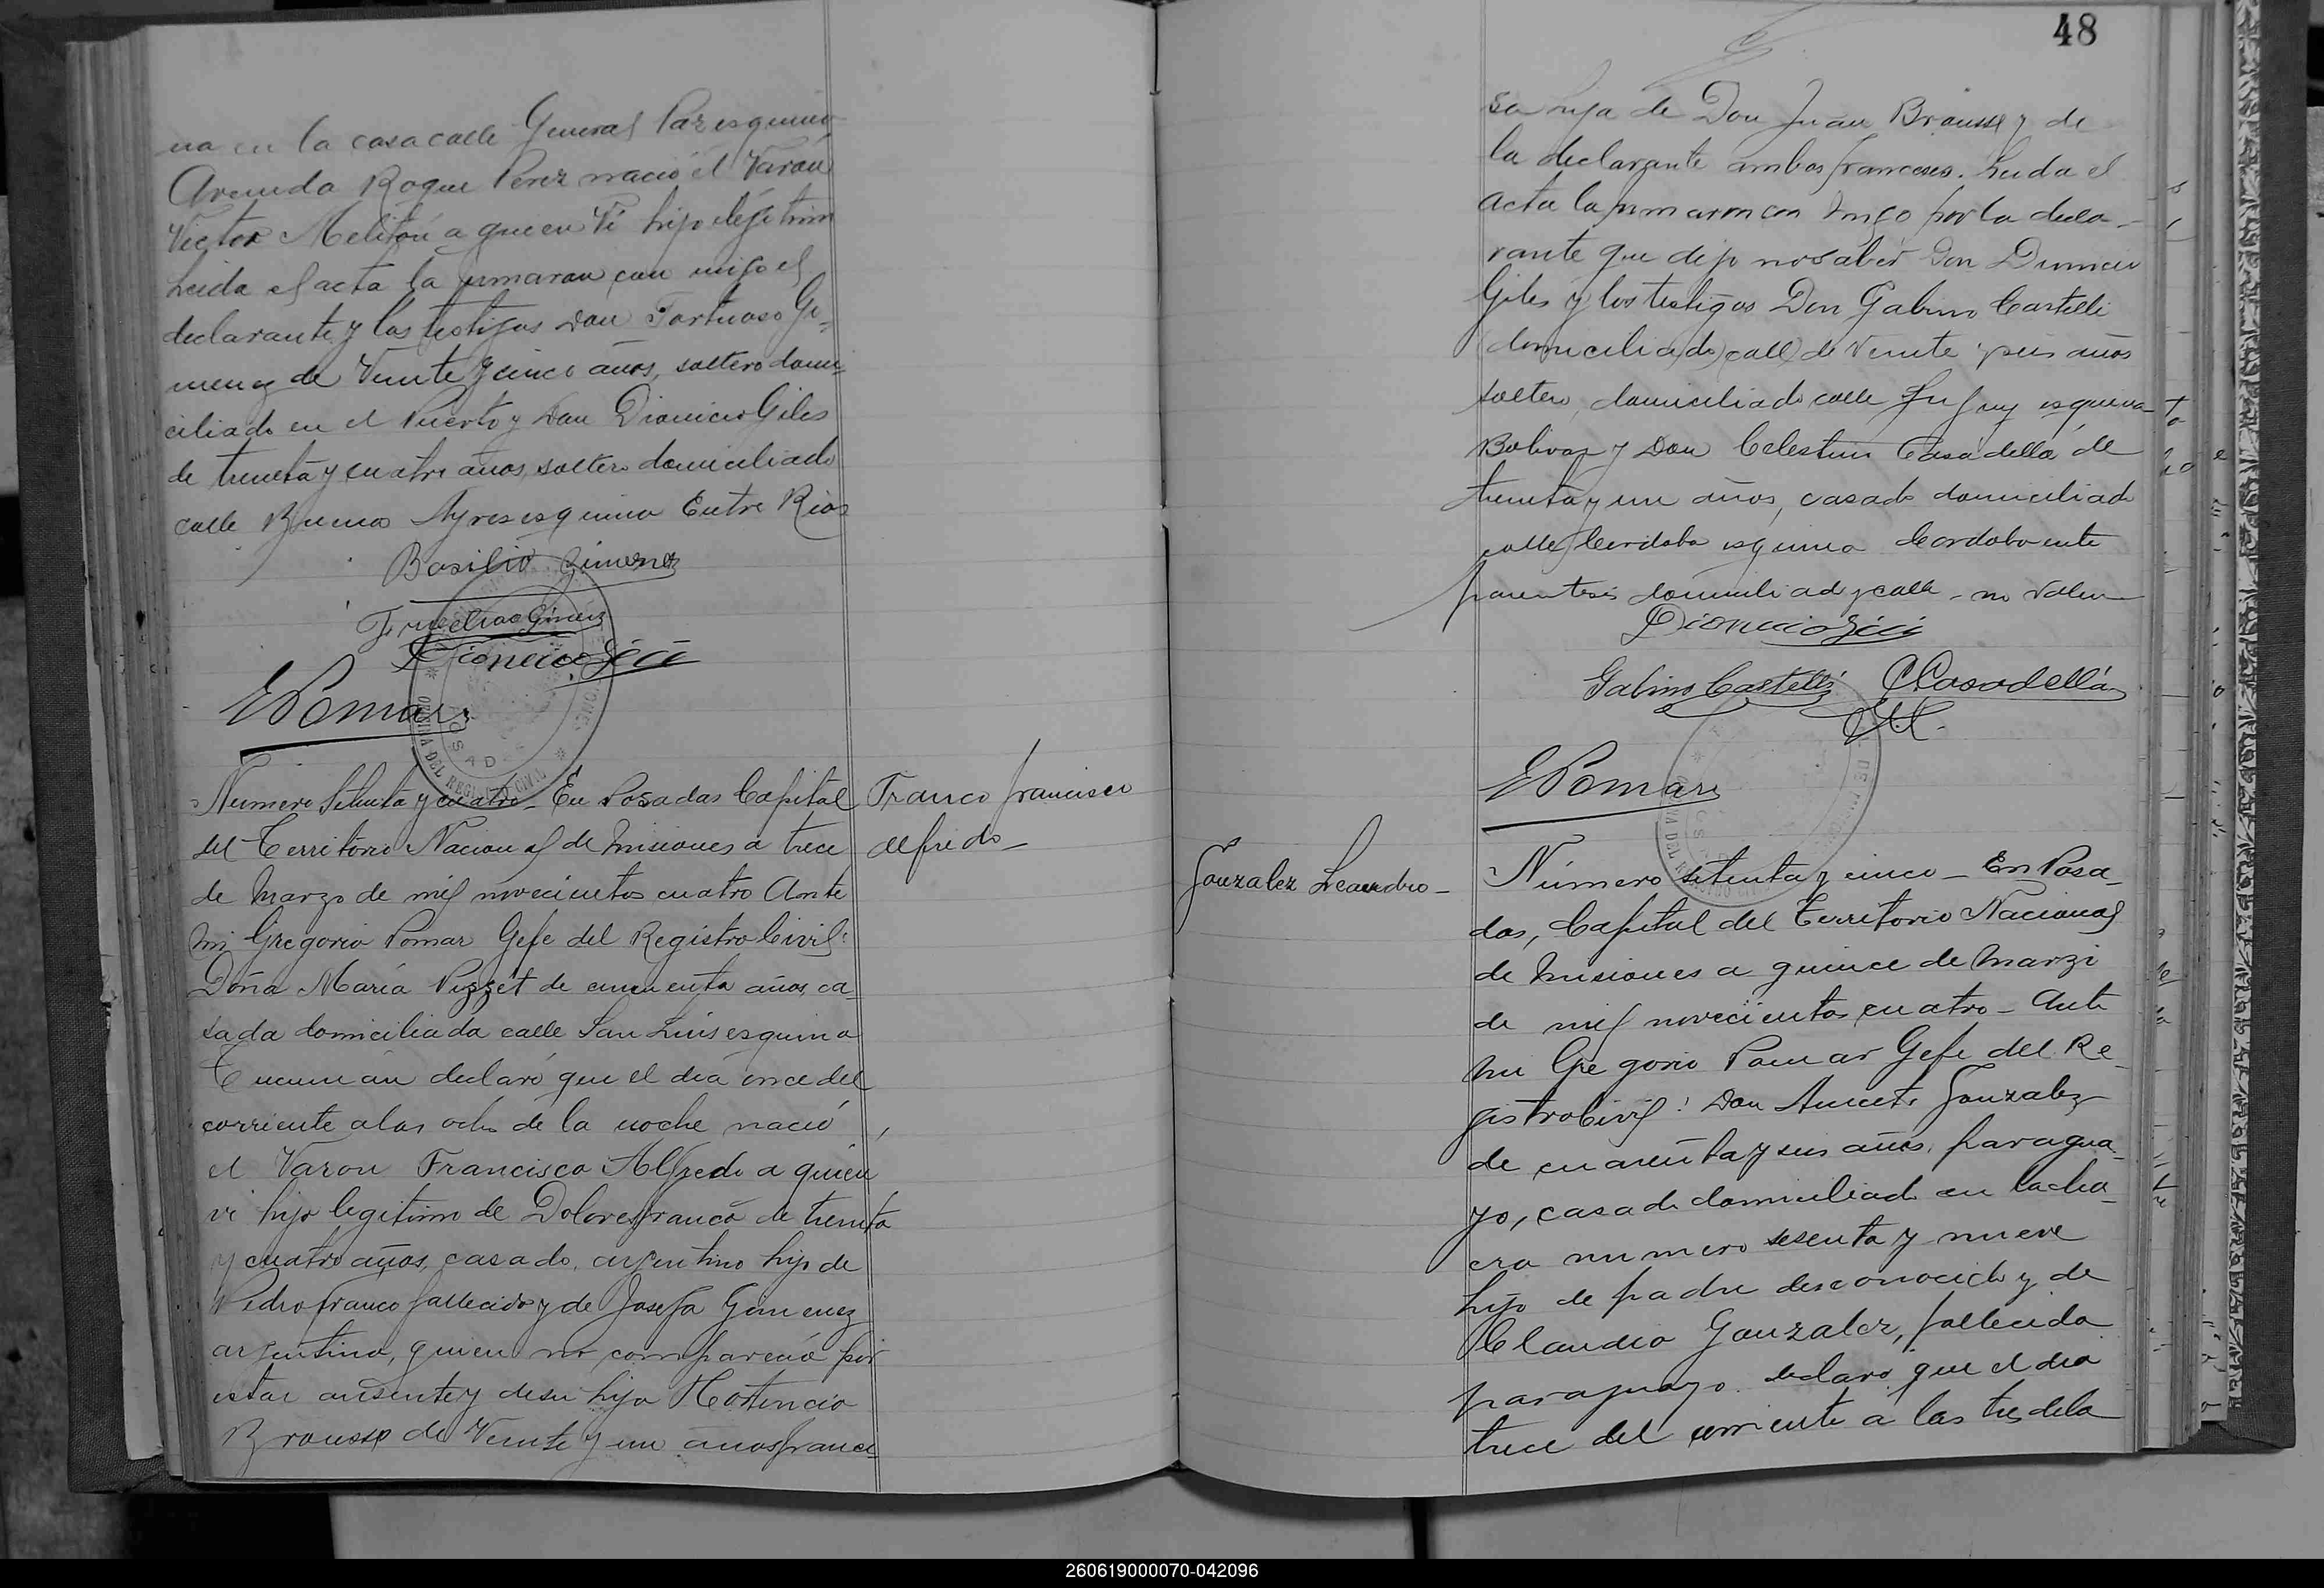 na en la casa calle General Paz esquina
Avenida Roque Perez nació el Varón
Victor Meliton a quien Vi hijo ilejitimo
Leida el acta la firmaron con migo el
declarante y los testigos Don Fortuoso Gi-
menez de Veinte y cinco años, soltero domi-
ciliado en el Puerto y Don Dionicio Giles
de treinta y cuatro años, soltero domiciliado
calle Buenos Ayres esquina Entre Rios
Basilio Gimenez
Dionicio Gili
EPomar
Número Setenta y cuatro - En Posadas Capital
del Territorio Nacional de Misiones a trece
de Marzo de mil novecientos cuatro Ante
mi Gregorio Pomar Gefe del Registro Civil:
Doña María Pizzet de cincuenta años, ca-
sada domiciliada calle San Luis esquina
Tucumán declaró que el día once del
corriente a las ocho de la noche nació
el Varon Francisco Alfredo a quien
vi hijo legitimo de Dolores Franco de treinta
y cuatro años, casado, argentino hijo de
Pedro Franco fallecido y de Josefa Gimenez
argentina, quien no compareció por
estar ausente y de su hija Hortencia
Brousse de Veinte y un años france-
Franco Francisco
Alfredo -
48
sa hija de Don Juan Brousse y de
la declarante ambos franceses. Leida el
acta la firmaron con migo por la decla-
rante que dijo no saber Don Dionicio
Giles y los testigos Don Gabino Castelli
(domiciliado calle) de Veinte y seis años
soltero, domiciliado calle Jujuy esquina
Bolivar y Don Celestino Casadellá de
treinta y un años, casado domiciliado
calle Cordoba esquina Cordoba entre
parentesis domiciliado y calle - no valen
Dionicio Gili
Gabino Castelli CCasadellá
EPomar
Gonzalez Leandro -
Número setenta y cinco - En Posa-
das, Capital del Territorio Nacional
de Misiones a quince de Marzo
de mil novecientos cuatro - Ante
mi Gregorio Pomar Gefe del Re-
gistro Civil: Don Aniceto Gonzalez
de cuarenta y seis años, paragua-
yo, casado domiciliado en la cha-
cra numero sesenta y nueve
hijo de padre desconocido y de
Claudia Gonzalez, fallecida
paraguaya declaró que el dia
trece del corriente a las tres de la
260619000070-042096